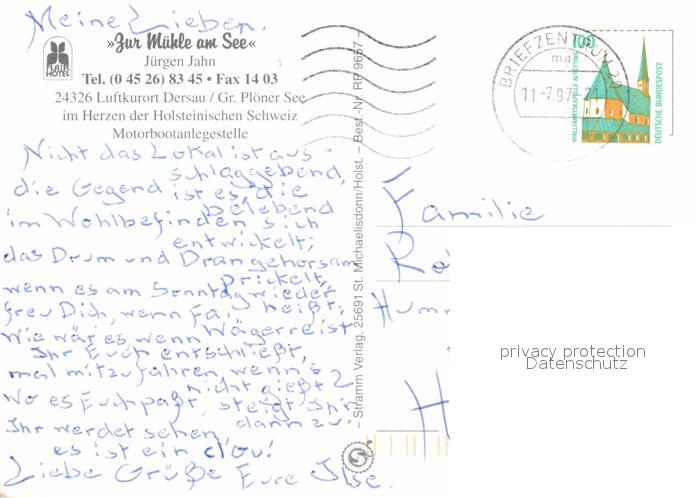 Meine Lieben.
»Zur Mühle am See«
FLAIR HOTEL
Jürgen Jahn
Tel. (0 45 26) 83 45 • Fax 14 03
24326 Luftkurort Dersau / Gr. Plöner See
im Herzen der Holsteinischen Schweiz
Motorbootanlegestelle
Nicht das Lokal ist aus-
schlaggebend,
die Gegend ist es, die
belebend
im Wohlbefinden sich
entwickelt;
das Drum und Dran gehorsam
prickelt,
wenn es am Sonntag wieder
heißt:
freu Dich, wenn Fa.
Wägerreist
Wie wär es, wenn
Ihr Euch entschließt,
mal mitzufahren, wenn's
nicht gießt?
Wo es Euch paßt, steigt Ihr
dann zu.
Ihr werdet sehen,
es ist ein clou!
Liebe Grüße Eure Ilse.
– Stramm Verlag, 25691 St. Michaelisdonn/Holst. – Best.-Nr. RP 9657 –
BRIEFZENTRUM 24
ma
11.-7.97-21
100
WALLFAHRTSKAPELLE ALTÖTTING
DEUTSCHE BUNDESPOST
Familie
Ro
Humm
H
privacy protection
Datenschutz